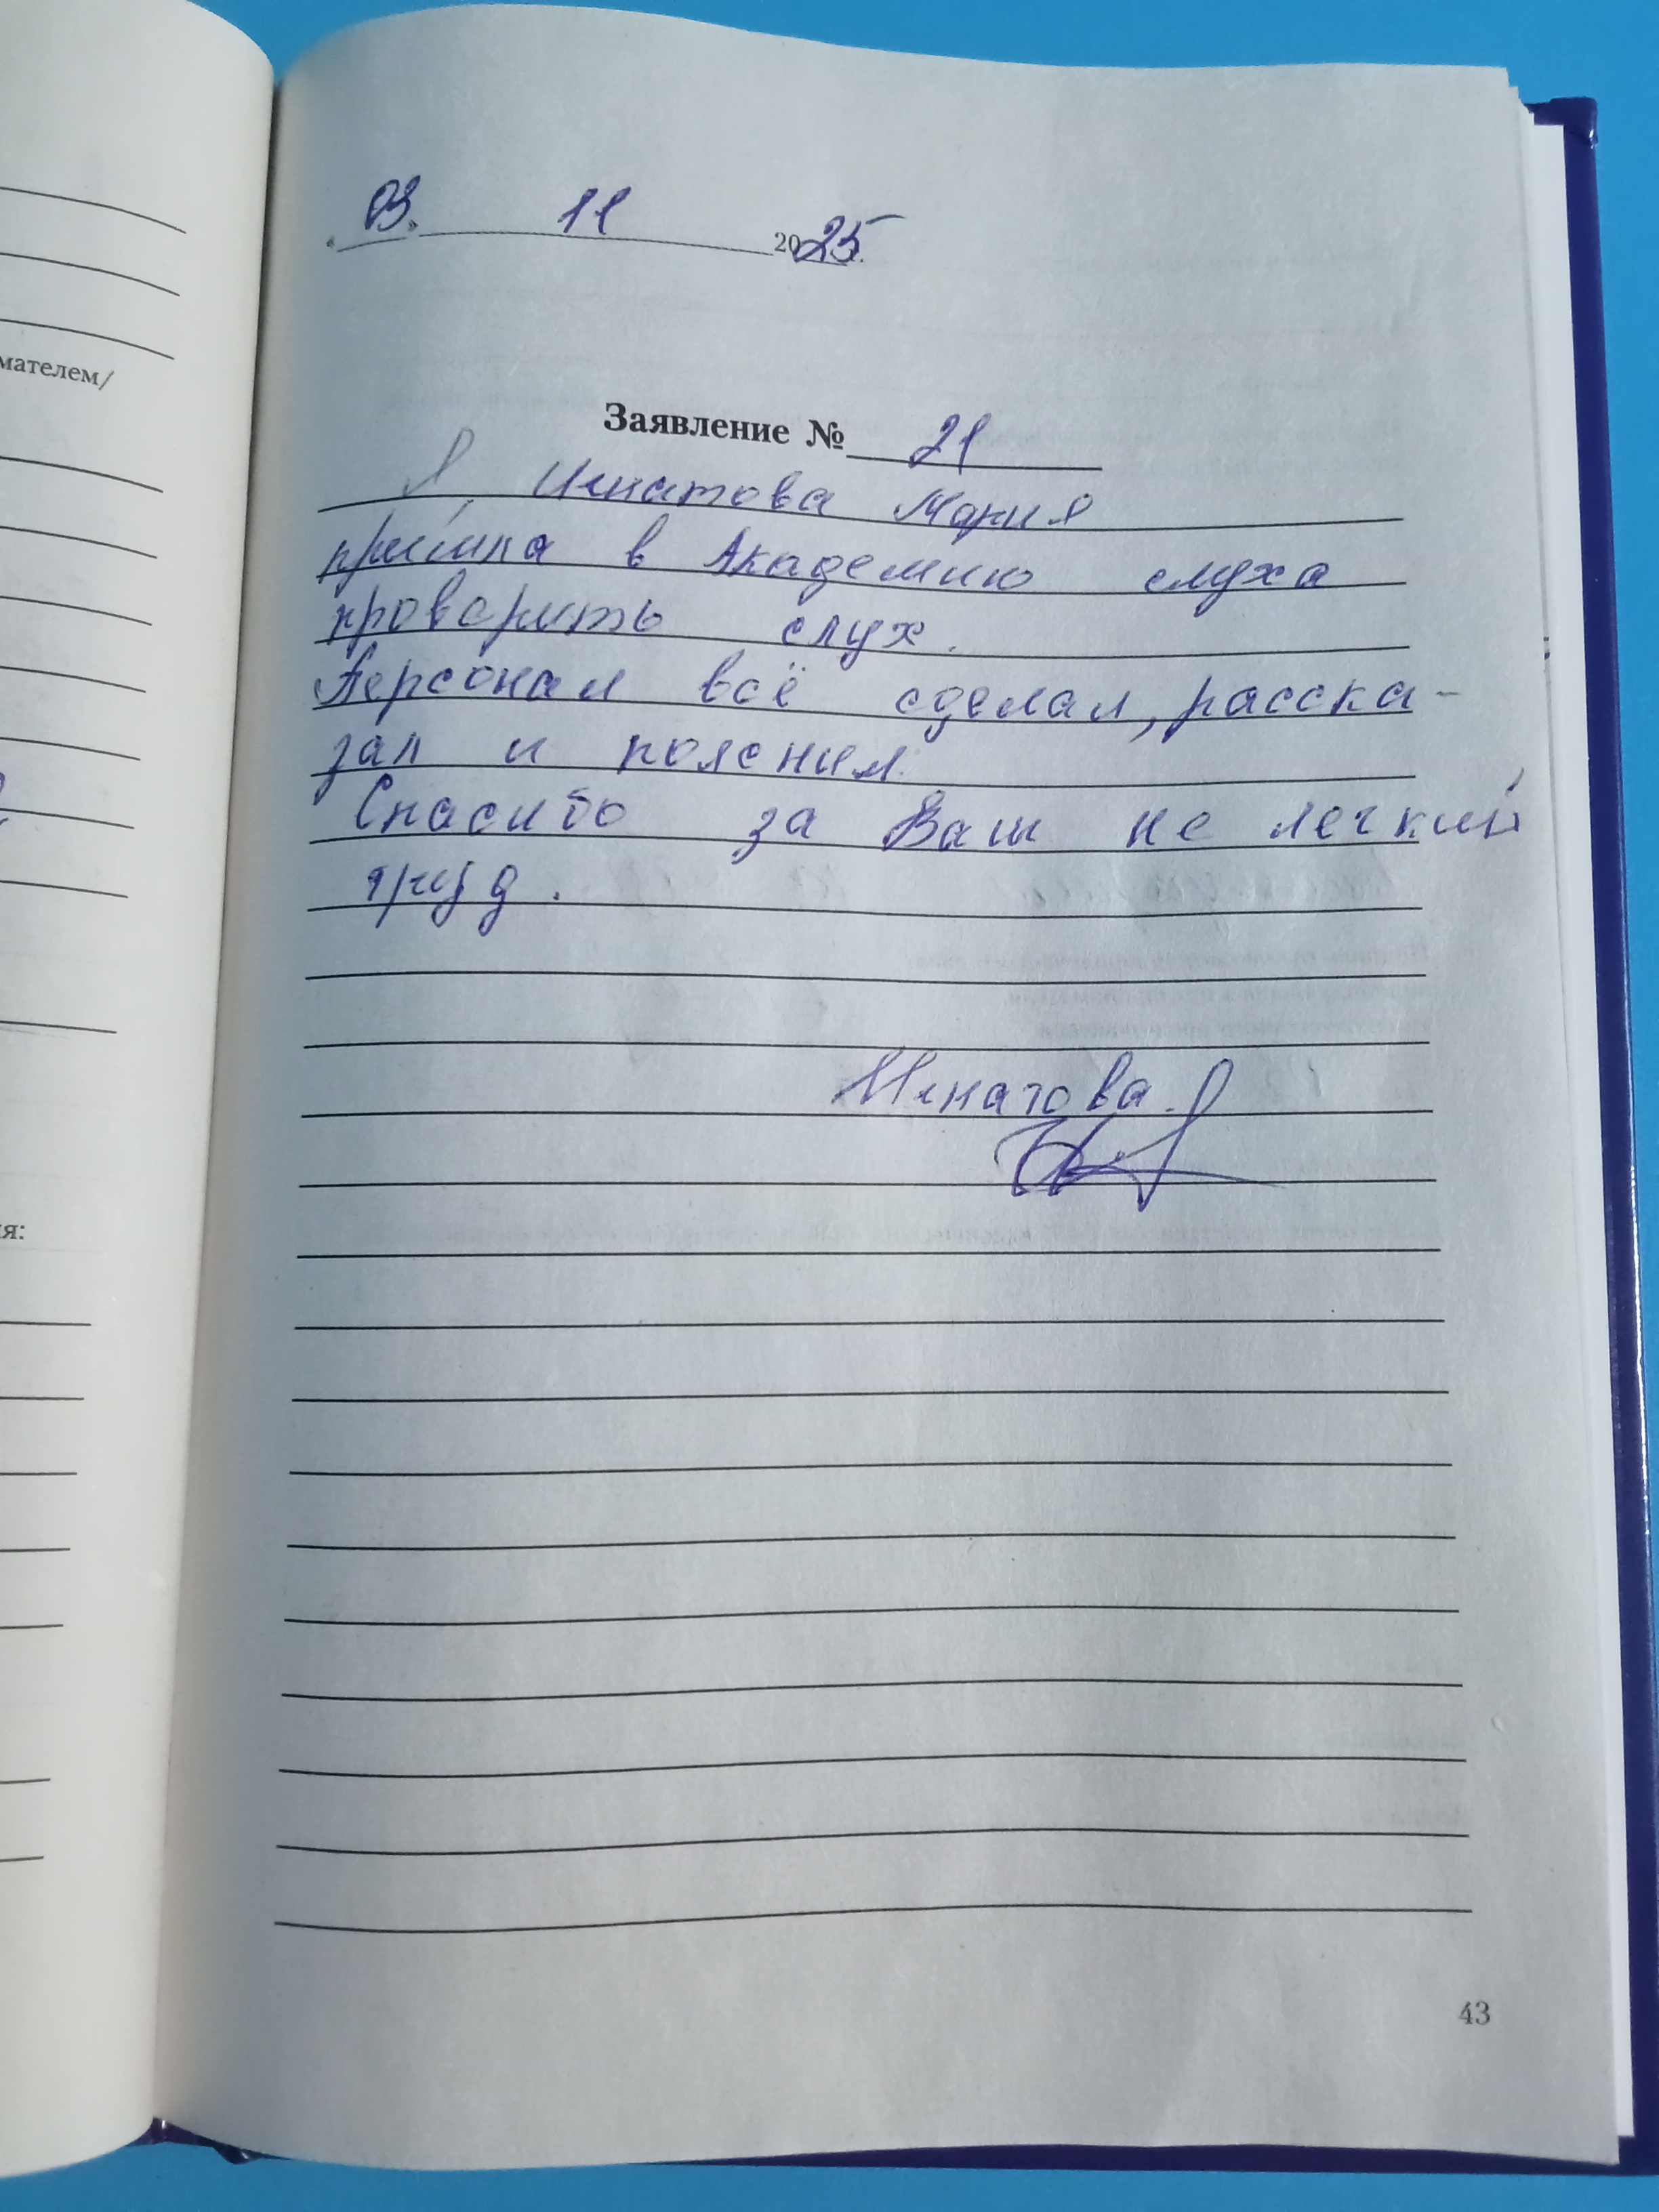 мателем/
я:
« 03 » 11 2025 г.
Заявление № 21
Я, Игнатова Мария
пришла в Академию слуха
проверить слух.
Персонал всё сделал, расска-
зал и пояснил.
Спасибо за Ваш не легкий
труд.
Игнатова.
43